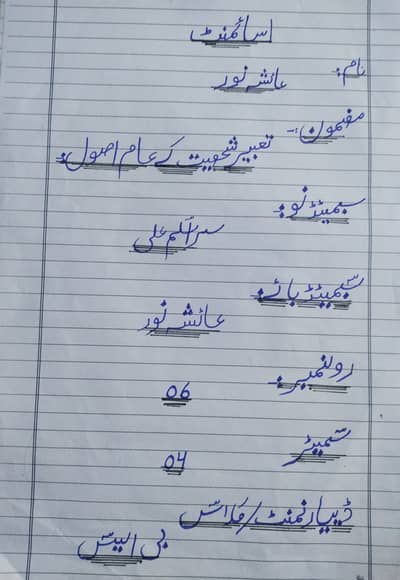 اسائمنٹ
نام:
عائشہ نور
مضمون:-
تعبیر شخصیت کے عام اصول:
سبمیٹڈ نو:
سر اسلم علی
سبمیٹڈ بائے:
عائشہ نور
رولنمبر:
06
سمیٹر
04
ڈیپارنمنٹ/کلاس
بی ایس